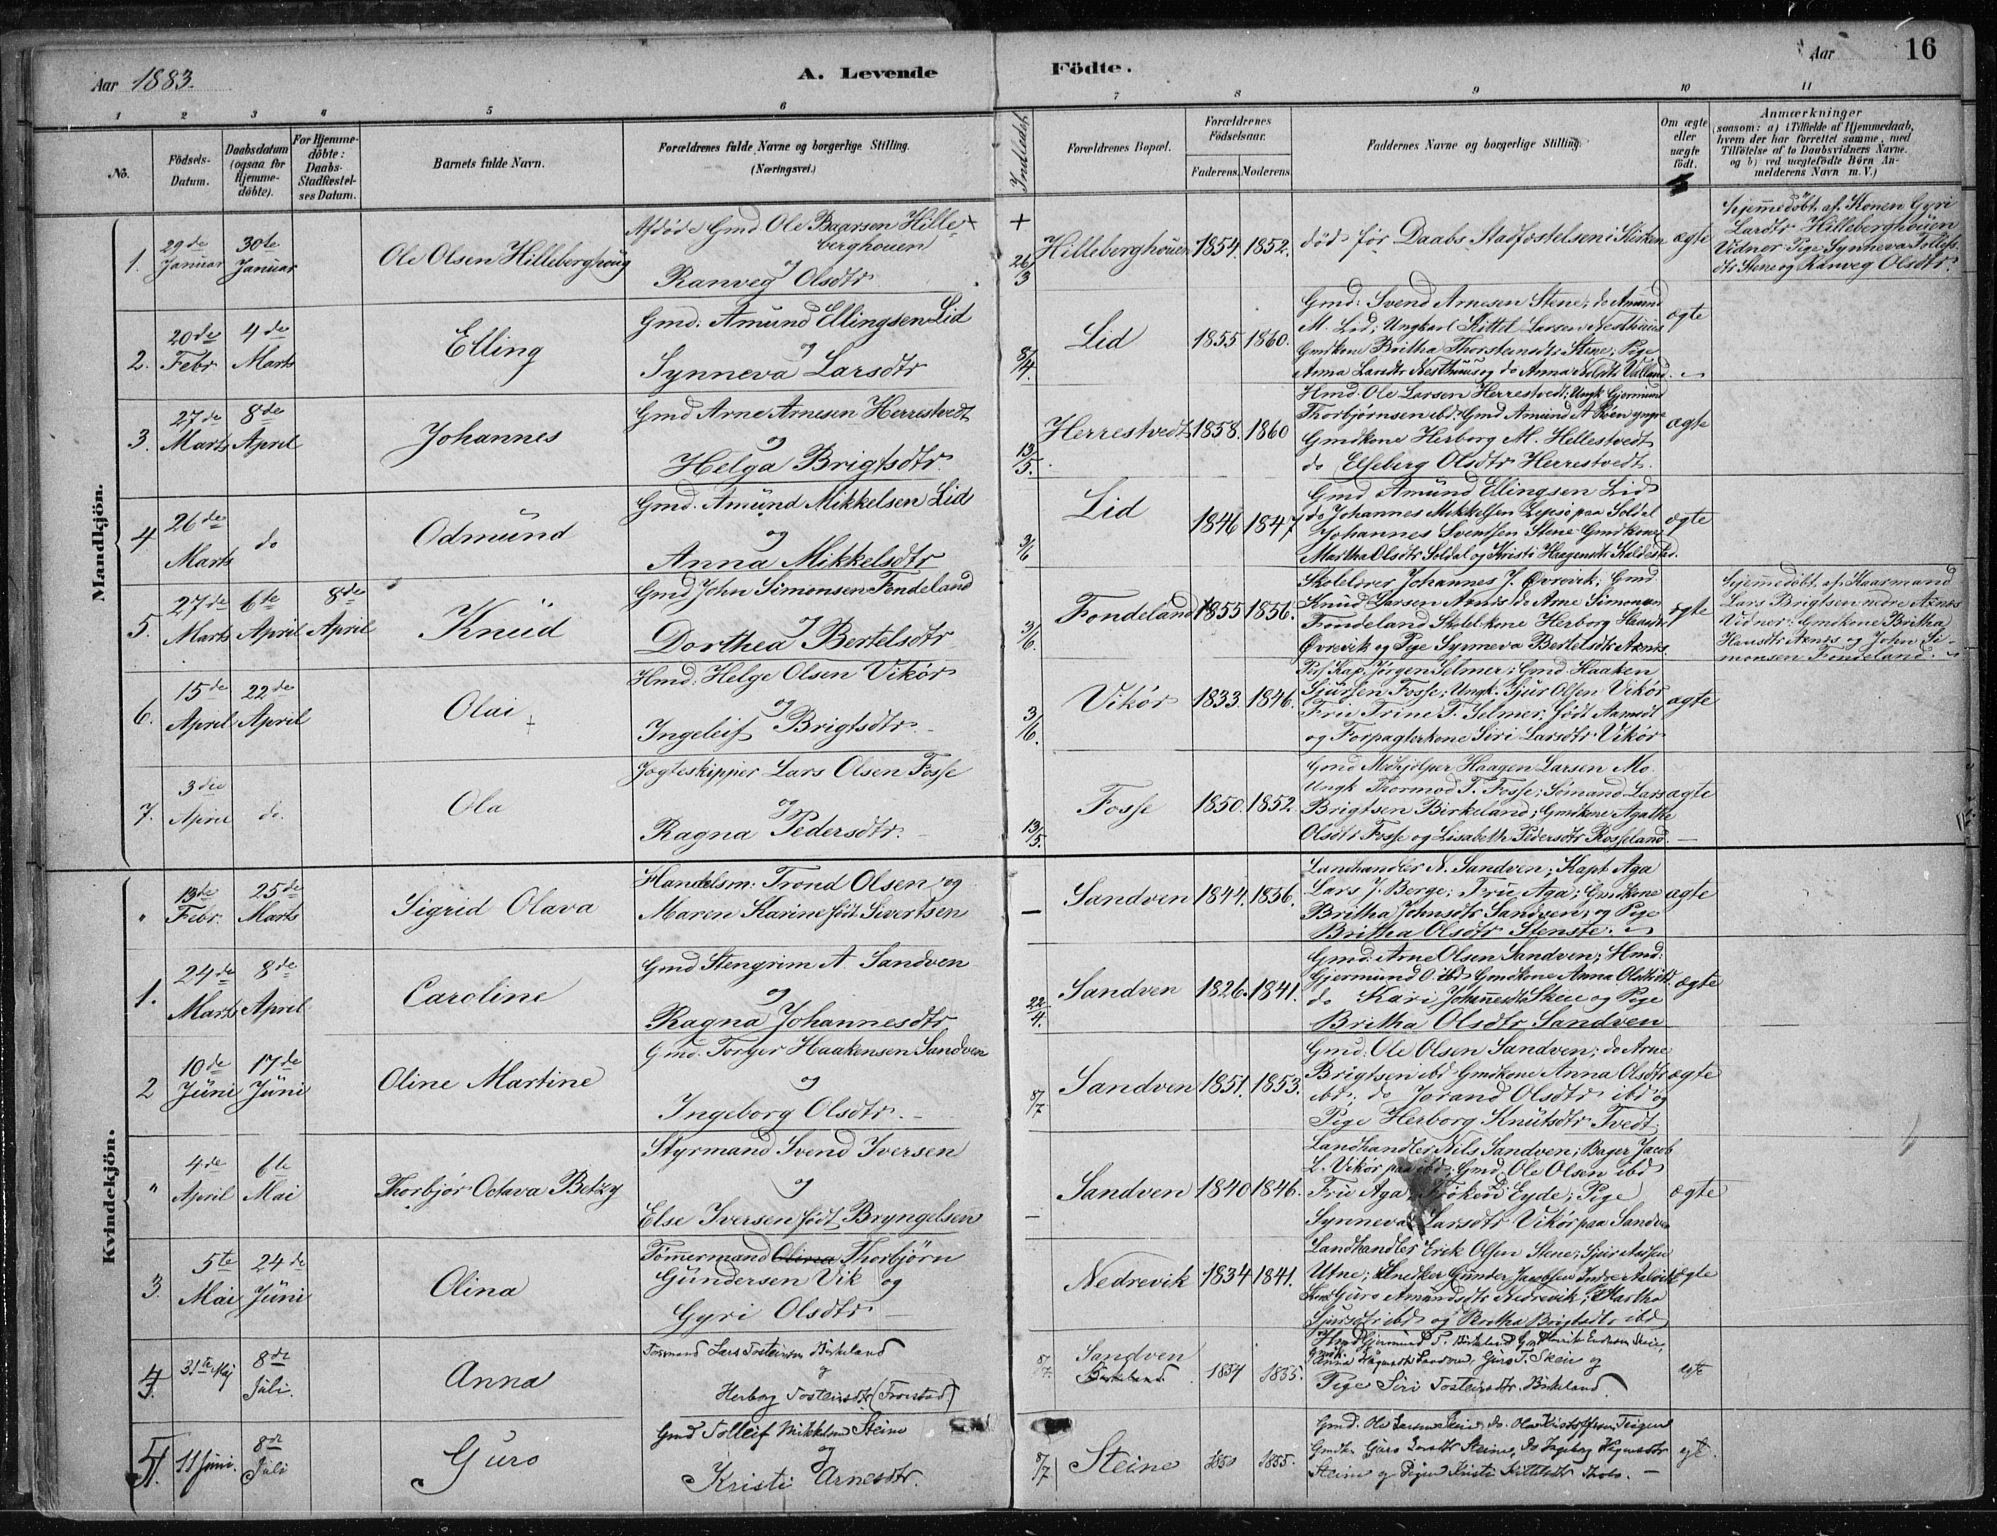 Aar 1883. A. Levende Födte. Aar 16
1 2 3 4 5 6 7 8 9 10 11
No.
Födsels-Datum.
Daabsdatum (ogsaa for Hjemme-döbte).
For Hjemme-döbte: Daabs-Stadfæstel-ses Datum.
Barnets fulde Navn.
Forældrenes fulde Navne og borgerlige Stilling. (Næringsvei.)
Indledet.
Forældrenes Bopæl.
Forældrenes Födselsaar.
Faderens. Moderens.
Faddernes Navne og borgerlige Stilling.
Om ægte eller uægte födt.
Anmærkninger
(saasom: a) i Tilfælde af Hjemmedaab,
hvem der har forrettet samme, med
Tilföielse af to Daabsvidners Navne.
og b) ved uægtefödte Börn An-
melderens Navn m. V.)
Mandkjön.
1. 29de Januar 30te Januar Ole Olsen Hilleberghoug
Afdöde Gmd Ole Baarsen Hille-
berghouen
og
Ranveg Olsdtr
+ 26/3 Hilleberghouen 1854. 1852.
död för Daabs Stadfæstelsen i Kirken ægte
Hjemmedöbt af Konen Gyri
Larsdtr Hilleberghouen
Vidner Pige Synneva Tollefs
dtr Stene og Ranveg Olsdtr.
2. 20de Febr 4de Marts Elling
Gmd: Amund Ellingsen Lid
og
Synneva Larsdtr
8/4. Lid 1855 1860.
Gmd: Svend Arnesen Stene; do Amund
M. Lid; Ungkarl Kittel Larsen Nesthuus
Gmdkone Britha Thorsteinsdtr Stene; Pige
Anna Larsdtr Nesthuus og do Anna
ægte
3. 27de Marts 8de April Johannes
Gmd Arne Arnesen Herrestvedt
og
Helga Brigtsdtr.
13/5. Herrestvedt 1858. 1860
Hmd: Ole Larsen Herrestvedt; Ungk Gjermund
Thorbjørnsen ibd: Gmd Amund A yngre
Gmdkone Herborg M. Hellestvedt
do Elseberg Olsdtr Herrestvedt.
ægte
4 26de Marts do Odmund
Gmd. Amund Mikkelsen Lid
og
Anna Mikkelsdtr
3/6 Lid 1846 1847
Gmd Amund Ellingsen Lid
do Johannes Mikkelsen Lepsø paa Soldal
Johannes Svendsen Stene Gmdkone
Martha Olsdtr Soldal og Kristi Haagensdtr
ægte
5. 27de Marts 6te April 8de April Knud
Gmd John Simonsen Fondeland
og
Dorthea Bertelsdtr
3/6. Fondeland 1855 1856.
Skolelærer Johannes J. Øvrevik; Gmd
Knud Larsen Axnes do Arne Simonsen
Fondeland Skolelkone Herborg Hansdtr
Øvrevik og Pige Synneva Bertelsdtr Axnes
ægte
Hjemmedöbt af Kaarmand
Lars Brigtsen nedre Axnes
Vidner: Gmdkone Britha
Hansdtr Axnes og John Si-
monsen Fondeland.
6. 15de April 22de April Olai
Hmd: Helge Olsen Vikör
og
Ingeleif Brigtsdtr.
3/6. Vikör 1833. 1846.
Kap. Jørgen Selmer; Gmd Haaken
Sjursen Fosse; Ungk. Sjur Olsen Vikör
Fru Trine T. Selmer, födt
og Forpagterkone Siri Larsdtr Vikör
ægte
7. 3die April do. Ola
Jægteskipper Lars Olsen Fosse
og
Ragna Pedersdtr.
13/5. Fosse 1850. 1852.
Gmd Medhjelper Haagen Larsen Mo.
Ungk Thormod T. Fosse; Sømand Lars
Brigtsen Birkeland; Gmdkone Agatha
Olsdtr Fosse og Lisabeth Pedersdtr Rosseland.
ægte
Kvindekjön.
" 13de Febr. 25de Marts Sigrid Olava
Handelsm: Trond Olsen og
Maren Karine födt Sivertsen
– Sandven 1844. 1856.
Landhandler N. Sandven; Kapt Aga
Lars J. Berge; Fru Aga; Gmdkone
Britha Johnsdtr Sandven; og Pige
Britha Olsdtr Stensie.
ægte
1. 24de Marts 8de April Caroline
Gmd Stengrim A. Sandven
og
Ragna Johannesdtr
22/4. Sandven 1826. 1841.
Gmd: Arne Olsen Sandven; Hmd:
Gjermund O. ibd Gmdkone Anna Olsdtr ibd.
do Kari Johannesdtr Skeie og Pige
Britha Olsdtr Sandven
ægte
2 10de Juni 17de Juni Oline Martine
Gmd: Torger Haakensen Sandven
og
Ingeborg Olsdtr.
8/7. Sandven 1851. 1853.
Gmd: Ole Olsen Sandven; do Arne
Brigtsen ibd Gmdkone Anna Olsdtr
ibd; do Jorand Olsdtr ibd og
Pige Herborg Knutsdtr Tvedt
ægte
" 4de April 6te Mai Thorbjør Octava Betzy
Styrmand Svend Iversen
og
Else Iversen födt Bryngelsen
– Sandven 1840 1846.
Landhandler Nils Sandven; Bager Jacob
L. Vikör paa ibd. Gmd. Ole Olsen ibd
Fru Aga; Frøken Eyde; Pige
Synneva Larsdtr Vikör paa Sandven
ægte
3. 5te Mai 24de Juni Olina
Tömmermand Olina Thorbjörn
Gundersen Vik og
Gyri Olsdtr
Nedrevik 1834 1841.
Landhandler Erik Olsen Stene; Sjur
Utne; Snedker Gunder Jacobsen Indre Aalvik
Guro Amundsdtr Nedrevik; Martha
Sjursdtr ibd og Britha Brigtsdtr ibd
ægte
4. 31te Maj 8de Juli. Anna
Lars Tosteinsen Birkeland
og
Herborg Tosteinsdtr
8/7. Sandven Birkeland 1854 1855.
Hmd Gjermund T. Birkeland Gmd Henrik Skeie,
Anna Sandven, Guro T. Skeie og
Pige Siri Tosteinsdtr Birkeland.
egte
5. 11 Juni. 8de Juli Guro
Gmd Tolleif Mikkelsen Steine
og
Kristi Arnesdtr.
8/7 Steine 1850 1855.
Gmd. Ole Larsen Steine, do. Olav Teigen
Gmdk. Guro Larsdtr Steine, do Ingeborg
Steine og Pigen Kristi Kittelsdtr
egte.